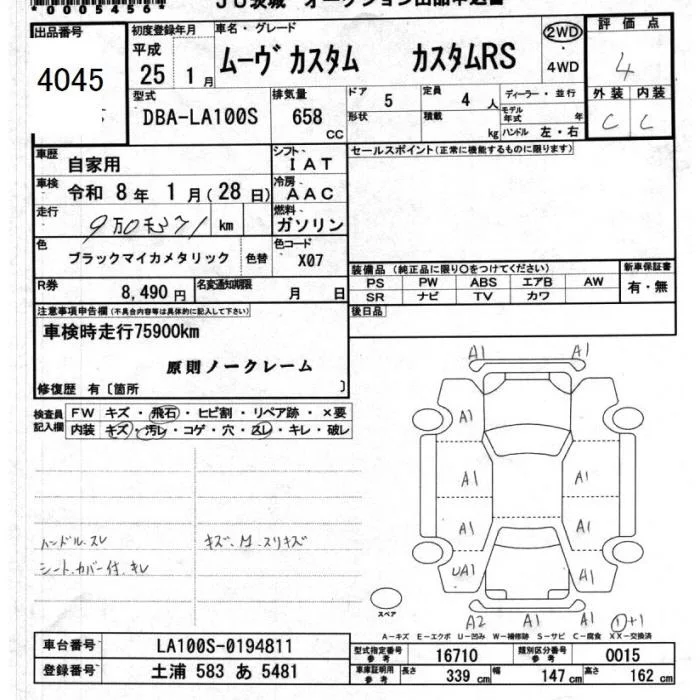 *0005456*
JU茨城 オークション出品申込書
出品番号
4045
初度登録年月
平成
25 1月
車名・グレード
ムーヴ カスタム カスタムRS
2WD
4WD
評価点
4
外装 内装
C C
型式
DBA-LA100S
排気量
658
CC
ドア
5
形状
定員
4 人
積載
kg
ディーラー・並行
モデル年式 年
ハンドル 左・右
車歴
自家用
シフト
IAT
セールスポイント(正常に機能するものに限ります)
車検
令和 8年 1月(28日)
冷房
AAC
走行
km
燃料
ガソリン
色
ブラックマイカメタリック
色替
色コード
X07
装備品 (純正品に限り○をつけてください)
PS PW ABS エアB AW
SR ナビ TV カワ
新車保証書
有・無
R券
8,490円
名変通知期限
月 日
後日品
注意事項申告欄(不具合内容等は具体的に記入して下さい)
車検時走行75900km
原則ノークレーム
修復歴 有〔箇所 〕
検査員記入欄
FW キズ・飛石・ヒビ割・リペア跡・×要
内装 キズ・汚レ・コゲ・穴・スレ・キレ・破レ
ハンドル.スレ
キズ、M.スリキズ
シート.カバー付.キレ
A1 A1
A1
A1 A1
A1 A1
UA1 A1
A2 A1 A1 ①+1
スペア
A-キズ E-エクボ U-凹み W-補修跡 S-サビ C-腐食 XX-交換済
車台番号
LA100S-0194811
登録番号
土浦 583 あ 5481
型式指定番号
参考
16710
類別区分番号
参考
0015
車庫証明用
参考
長さ
339 cm
幅
147 cm
高さ
162 cm